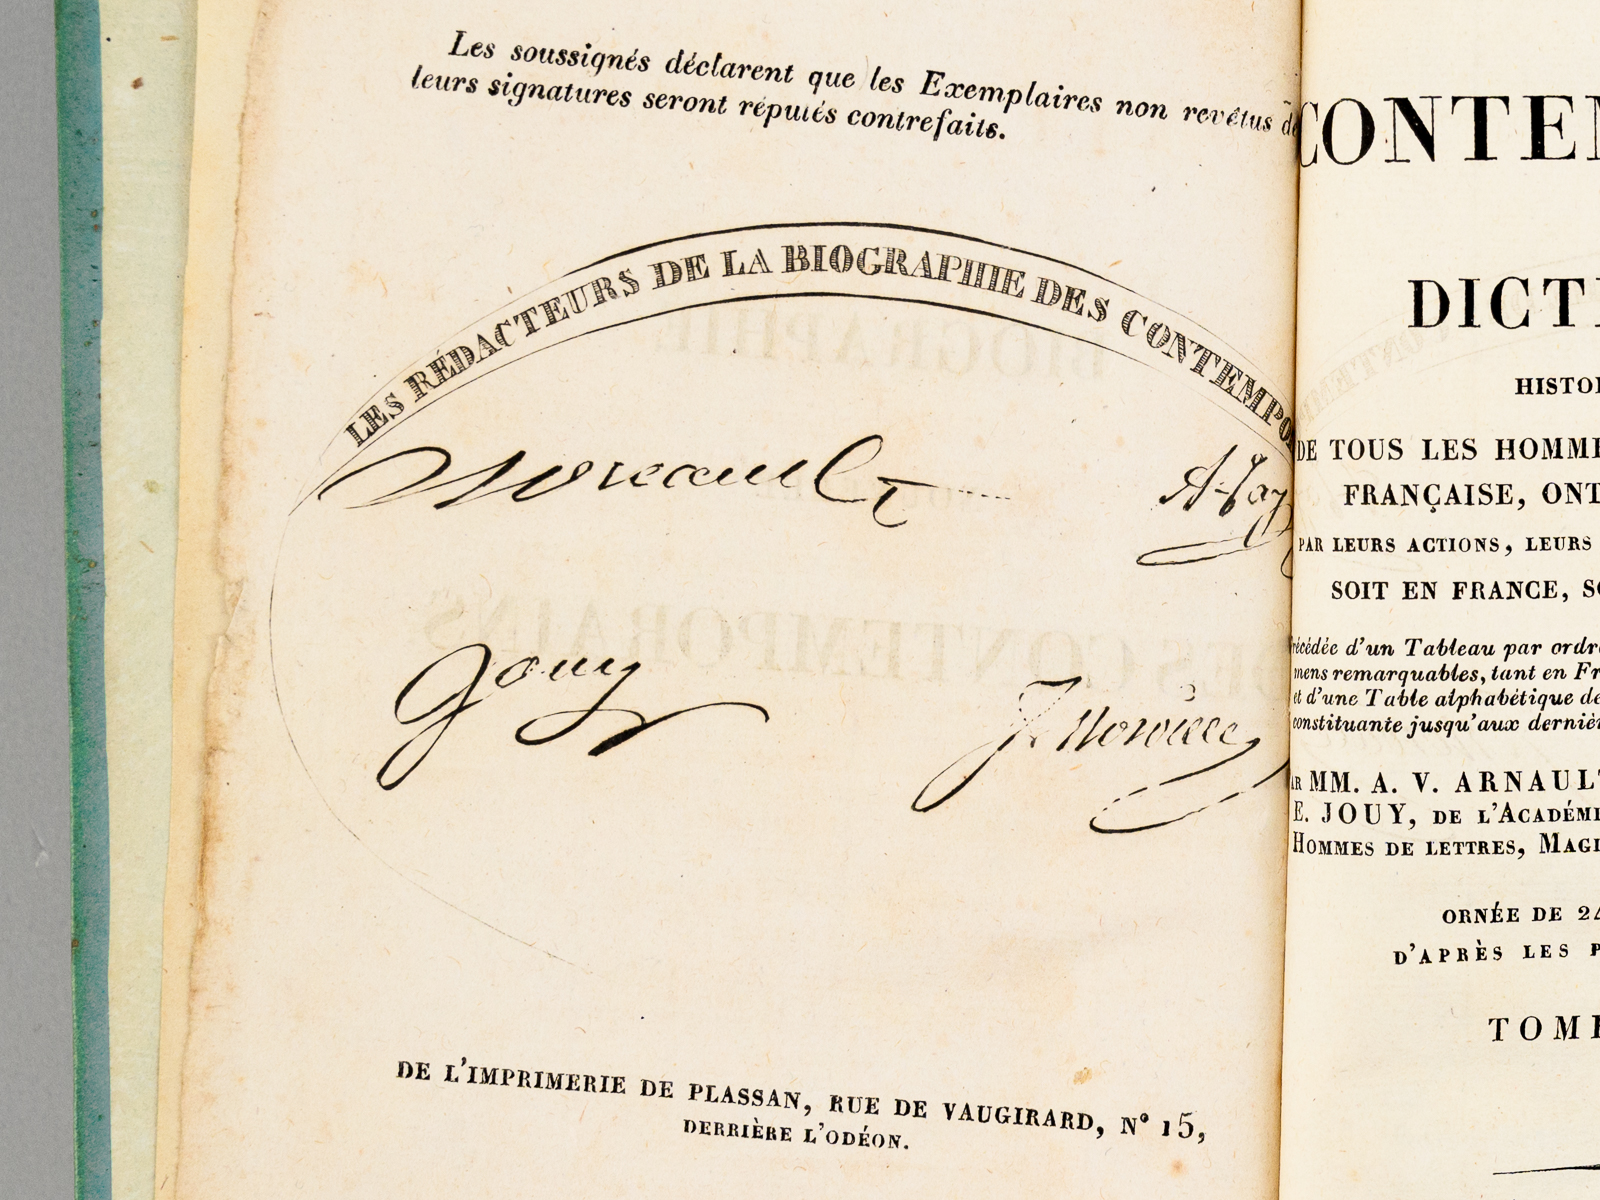 Les soussignés déclarent que les Exemplaires non revêtus de
leurs signatures seront réputés contrefaits.
LES RÉDACTEURS DE LA BIOGRAPHIE DES CONTEMPO
A. Jay
Jouy
J. Norvins
DE L'IMPRIMERIE DE PLASSAN, RUE DE VAUGIRARD, N° 15,
DERRIÈRE L'ODÉON.
CONTEM
DICTI
HISTOI
DE TOUS LES HOMME
FRANÇAISE, ONT
PAR LEURS ACTIONS, LEURS
SOIT EN FRANCE, SO
récédée d'un Tableau par ordre
mens remarquables, tant en Fr
et d'une Table alphabétique de
constituante jusqu'aux dernièr
AR MM. A. V. ARNAULT
E. JOUY, DE L'ACADÉMI
HOMMES DE LETTRES, MAGI
ORNÉE DE 24
D'APRÈS LES P
TOME